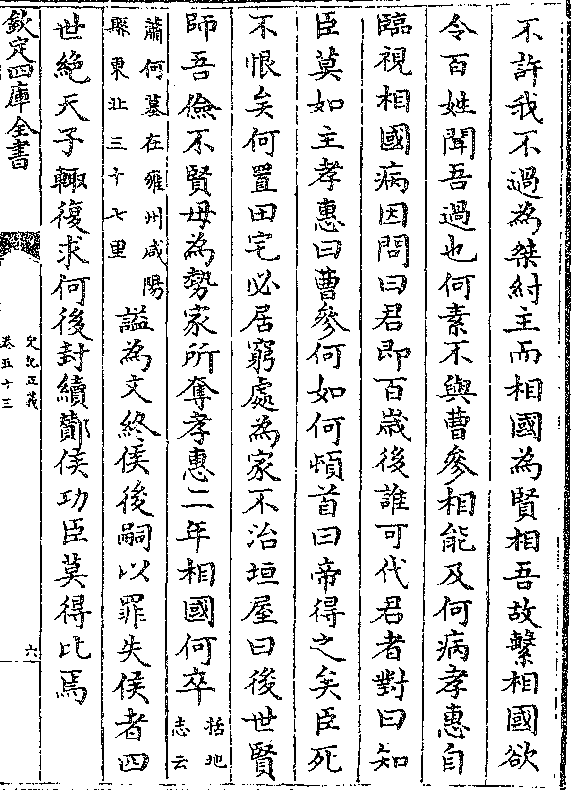 不許我不過為桀紂主而相國為賢相吾故繫相國欲
令百姓聞吾過也何素不與曹參相能及何病孝惠自
臨視相國病因問曰君即百歲後誰可代君者對曰知
臣莫如主孝惠曰曹參何如何頓首曰帝得之矣臣死
不恨矣何置田宅必居窮處為家不治垣屋曰後世賢
師吾儉不賢毋為勢家所奪孝惠二年相國何卒括地志云
蕭何墓在雍州咸陽縣東北三十七里諡為文終侯後嗣以罪失侯者四
世絕天子輒復求何後封續酇侯功臣莫得比焉
欽定四庫全書
史記正義
卷五十三
六